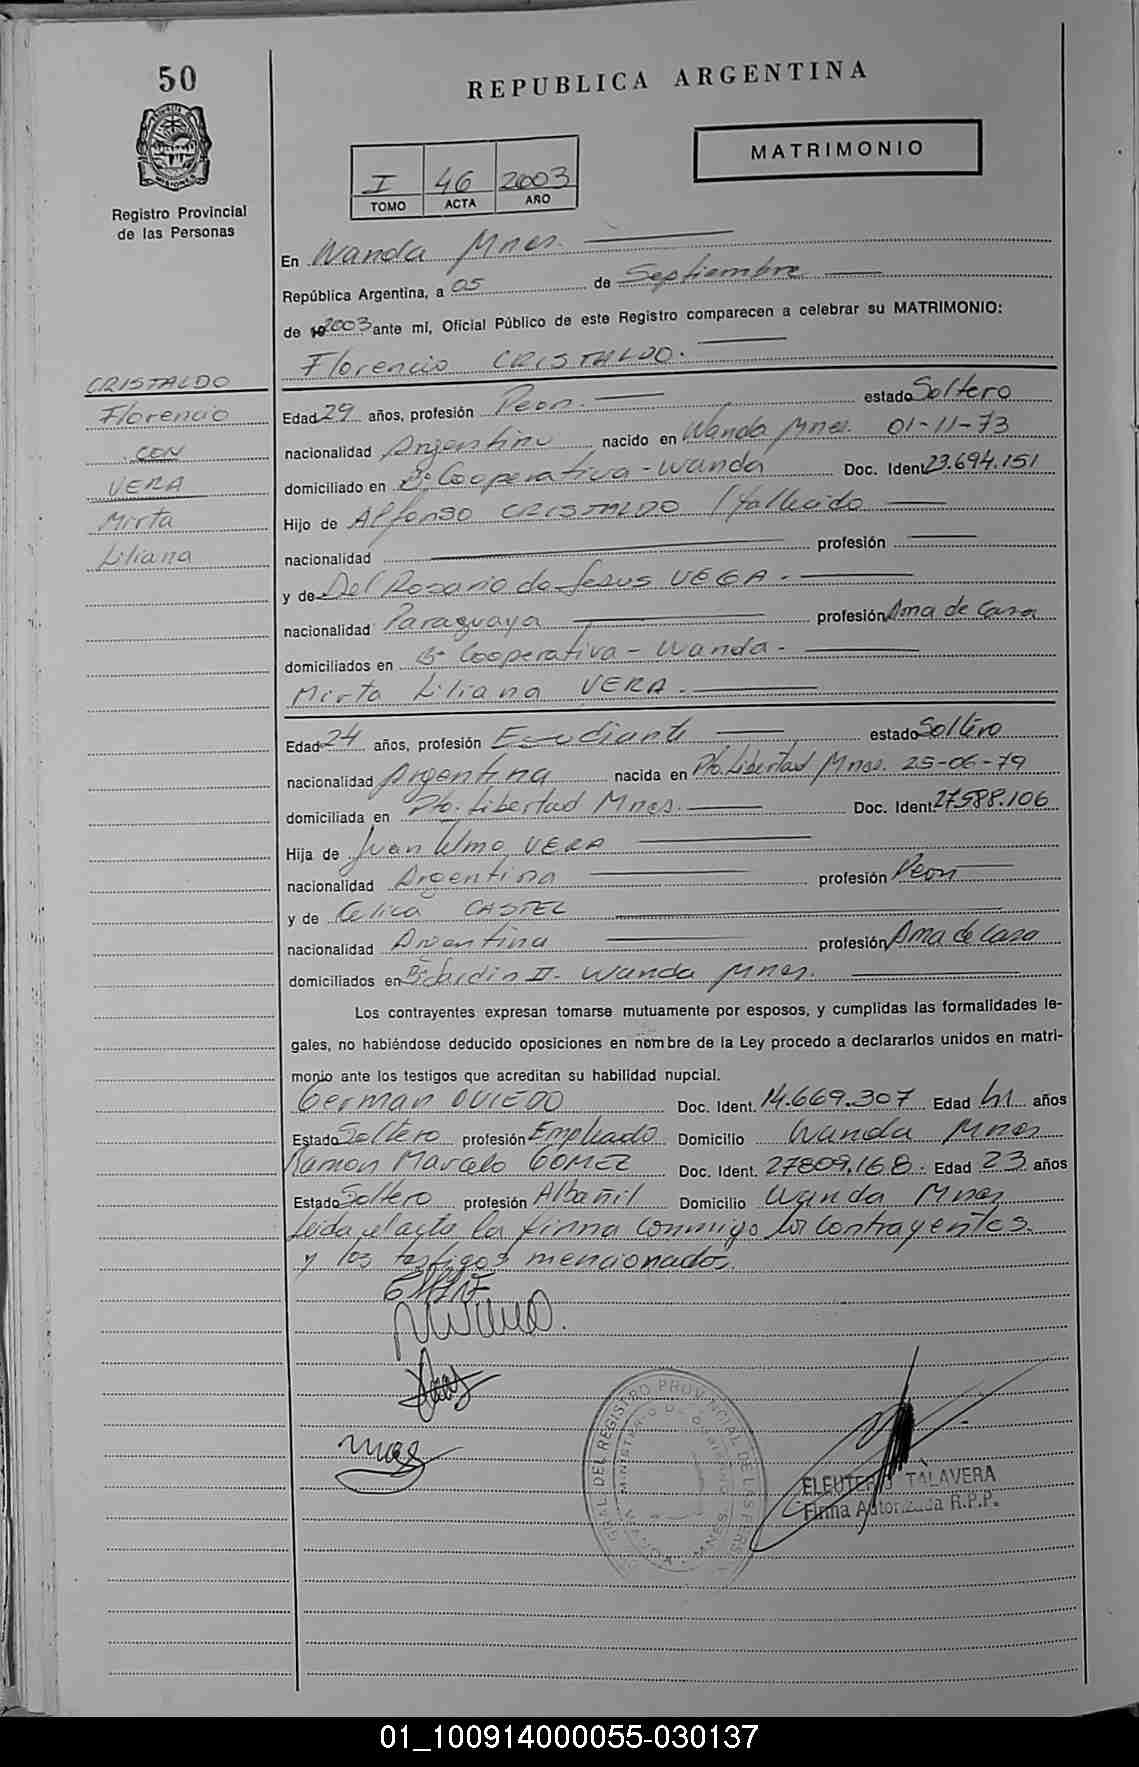 50
REPUBLICA ARGENTINA
MATRIMONIO
I 46 2003
TOMO ACTA AÑO
Registro Provincial
de las Personas
En Wanda Mnes.
República Argentina, a 05 de Septiembre
de 2003 ante mí, Oficial Público de este Registro comparecen a celebrar su MATRIMONIO:
Florencio CRISTALDO.
CRISTALDO
Florencio
CON
VERA
Mirta
Liliana
Edad 29 años, profesión Peon. estado Soltero
nacionalidad Argentino nacido en Wanda Mnes. 01-11-73
domiciliado en Bº Cooperativa - Wanda Doc. Ident. 23.694.151
Hijo de Alfonso CRISTALDO (fallecido
nacionalidad profesión
y de Del Rosario de Jesus VEGA.
nacionalidad Paraguaya profesión Ama de Casa
domiciliados en Bº Cooperativa - Wanda.
Mirta Liliana VERA.
Edad 24 años, profesión Estudiante estado Soltero
nacionalidad Argentina nacida en Pto. Libertad Mnes. 25-06-79
domiciliada en Pto. Libertad Mnes. Doc. Ident. 27.588.106
Hija de Juan Telmo VERA
nacionalidad Argentina profesión Peon
y de Celica CASTEL
nacionalidad Argentina profesión Ama de Casa
domiciliados en Bº Jardin II - Wanda Mnes.
Los contrayentes expresan tomarse mutuamente por esposos, y cumplidas las formalidades le-
gales, no habiéndose deducido oposiciones en nombre de la Ley procedo a declararlos unidos en matri-
monio ante los testigos que acreditan su habilidad nupcial.
German OVIEDO Doc. Ident. 14.669.307 Edad 41 años
Estado Soltero profesión Empleado Domicilio Wanda Mnes
Ramon Marcelo GOMEZ Doc. Ident. 27809.168. Edad 23 años
Estado Soltero profesión Albañil Domicilio Wanda Mnes
Leida el acta la firma conmigo los contrayentes.
y los testigos mencionados.
DEL REGISTRO PROVINCIAL DE LAS PERS
MINISTERIO DE GOBIERNO
WANDA - MNES.
ELEUTERIO TALAVERA
Firma Autorizada R.P.P.
01_100914000055-030137